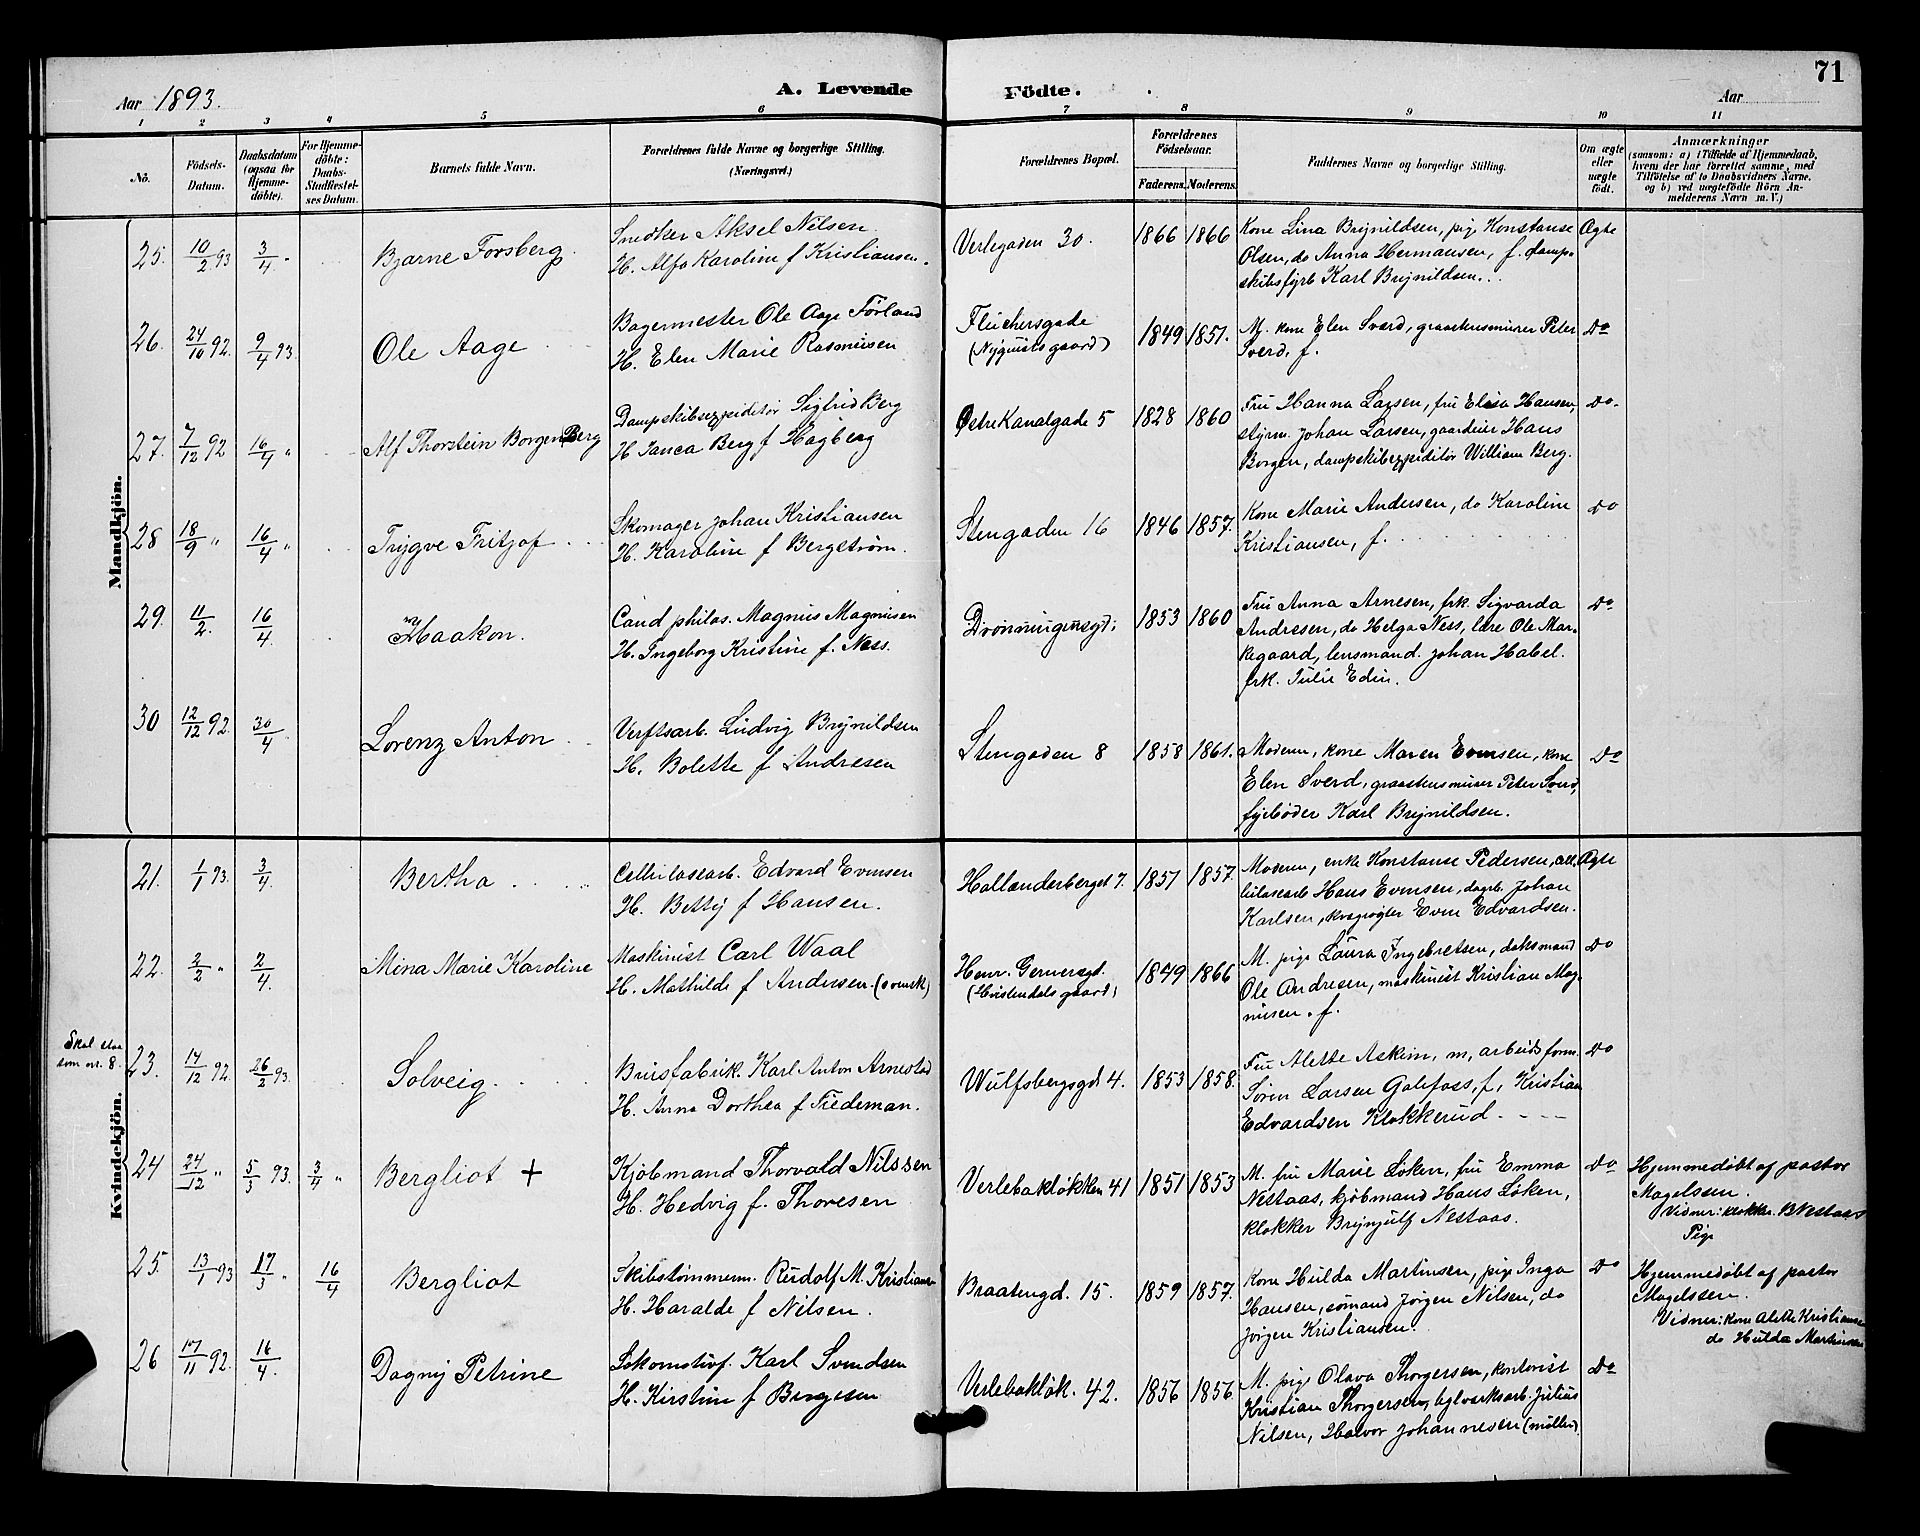 Aar 1893. A. Levende Födte. Aar 71
1 2 3 4 5 6 7 8 9 10 11
No. Födsels-Datum. Daabsdatum (ogsaa for Hjemmedöbte). For Hjemmedöbte: Daabs-Stadfæstelses Datum. Barnets fulde Navn. Forældrenes fulde Navne og borgerlige Stilling. (Næringsvei.) Forældrenes Bopæl. Forældrenes Födselsaar. Faderens. Moderens. Faddernes Navne og borgerlige Stilling. Om ægte eller uægte födt. Anmærkninger (saasom: a) i Tilfælde af Hjemmedaab, hvem der har forrettet samme, med Tilföielse af to Daabsvidners Navne, og b) ved uægtefödte Börn Anmelderens Navn m. V.)
Mandkjön.
25. 10/2 93 3/4 " Bjarne Forsberg. Snedker Aksel Nilsen Verlegaden 30. 1866 1866 Kone Lina Brynildsen, pige Konstanse Ægte
H. Alfa Karoline f Kristiansen. Olsen, do Anna Hermansen, f. damp-
skibsfyrb Karl Brynildsen.
26. 24/10 92. 9/4 93. Ole Aage Bagermester Ole Aage Førland Fleuchersgade 1849 1851. M. kone Elen Sverd, graastensmurer Peter Do
H. Elen Marie Rasmusen (Nyquists gaard) Sverd, f.
27. 7/12 92 16/4 " Alf Thorstein Borgen Berg Dampskibsexpeditör Sigfrid Berg Østre Kanalgade 5 1828 1860 Fru Hanna Larsen, fru Elisa Hansen, Do.
H Janca Berg f Hagberg styrm. Johan Larsen, gaardeier Hans
Borgen, dampskibexpeditör William Berg.
28 18/9 " 16/4 " Trygve Fritjof Skomager Johan Kristiansen Stengaden 16 1846 1857. Kone Marie Andersen, do Karoline Do
H. Karoline f Bergström. Kristiansen, f.
29. 11/2. 16/4. Haakon. Cand philos. Magnus Magnusen Dronningensgd. 1853 1860 Fru Anna Arnesen, frk. Sigvarda Do.
H. Ingeborg Kristine f. Ness. Andresen, do Helga Ness, lære Ole Mar-
kegaard, lensmand. Johan Habel.
frk. Julie Edin.
30 12/12 92. 30/4 Lorenz Anton Verftsarb. Ludvig Brynildsen Stengaden 8 1858 1861. Moderen, kone Maren Evensen, kone Do
H. Bolette f Andresen Elen Sverd, graastensmurer Peter Sverd,
fyrböder Karl Brynildsen.
Kvindekjön.
21. 1/1 93. 3/4. Bertha Cellulosearb. Edvard Evensen Hollenderberget 7. 1851 1857. Moderen, enke Konstanse Pedersen, cel- Ægte
H. Betty f Hansen. lulosearb Hans Evensen, dagarb. Johan
Karlsen, kvægrøgter Even Edvardsen.
22. 2/2 " 2/4. Mina Marie Karoline Maskinist Carl Waal Henr. Gernersgd. 1849 1866 M. pige Laura Ingebretsen, doksmand Do
H. Mathilde f Andersen. (svensk) (Hvistendals gaard) Ole Andresen, maskinist Kristian Mag-
nusen. f.
Skal staa som nr. 8. 23. 14/12 92. 26/2 93. Solveig. Brusfabrik. Karl Anton Arnestad Wulfsbergsgd 4. 1853 1858. Fru Alette Askim, m, arbeidsform. Do
H. Anna Dorthea f Tiedeman. Sören Larsen Galefoss, f, Kristian
Edvardsen Klokkerud.
24 24/12 " 5/3 93. 3/4 " Bergliot + Kjöbmand Thorvald Nilssen Verlebaklökken 41 1851 1853 M. fru Marie Löken, fru Emma Do Hjemmedöbt af pastor
H. Hedvig f. Thoresen Nestaas, kjöbmand Hans Löken, Magelssen.
klokker Brynjulf Nestaas. Vidner: klokker. B Nestaas
Pige
25. 13/1 93 17/3 " 16/4 Bergliot Skibstömmerm. Rudolf M. Kristiansen Braatengd. 15. 1859 1857. Kone Hulda Martinsen, pige Inga Do Hjemmedöbt af pastor
H. Haralde f Nilsen. Hansen, sömand Jörgen Nilsen, do Magelssen.
Jörgen Kristiansen. Vidner: kone Alette Kristiansen
do Hulda Martinsen
26 17/11 92. 16/4. Dagny Petrine Lokomotivf. Karl Svendsen Verlebaklök. 42. 1856 1856. M. pige Olava Thorgersen, kontorist Do
H. Kirstine f Bergesen Kristian Thorgersen, teglverksarb. Julius
Nilsen, Halvor Johannesen (møller)